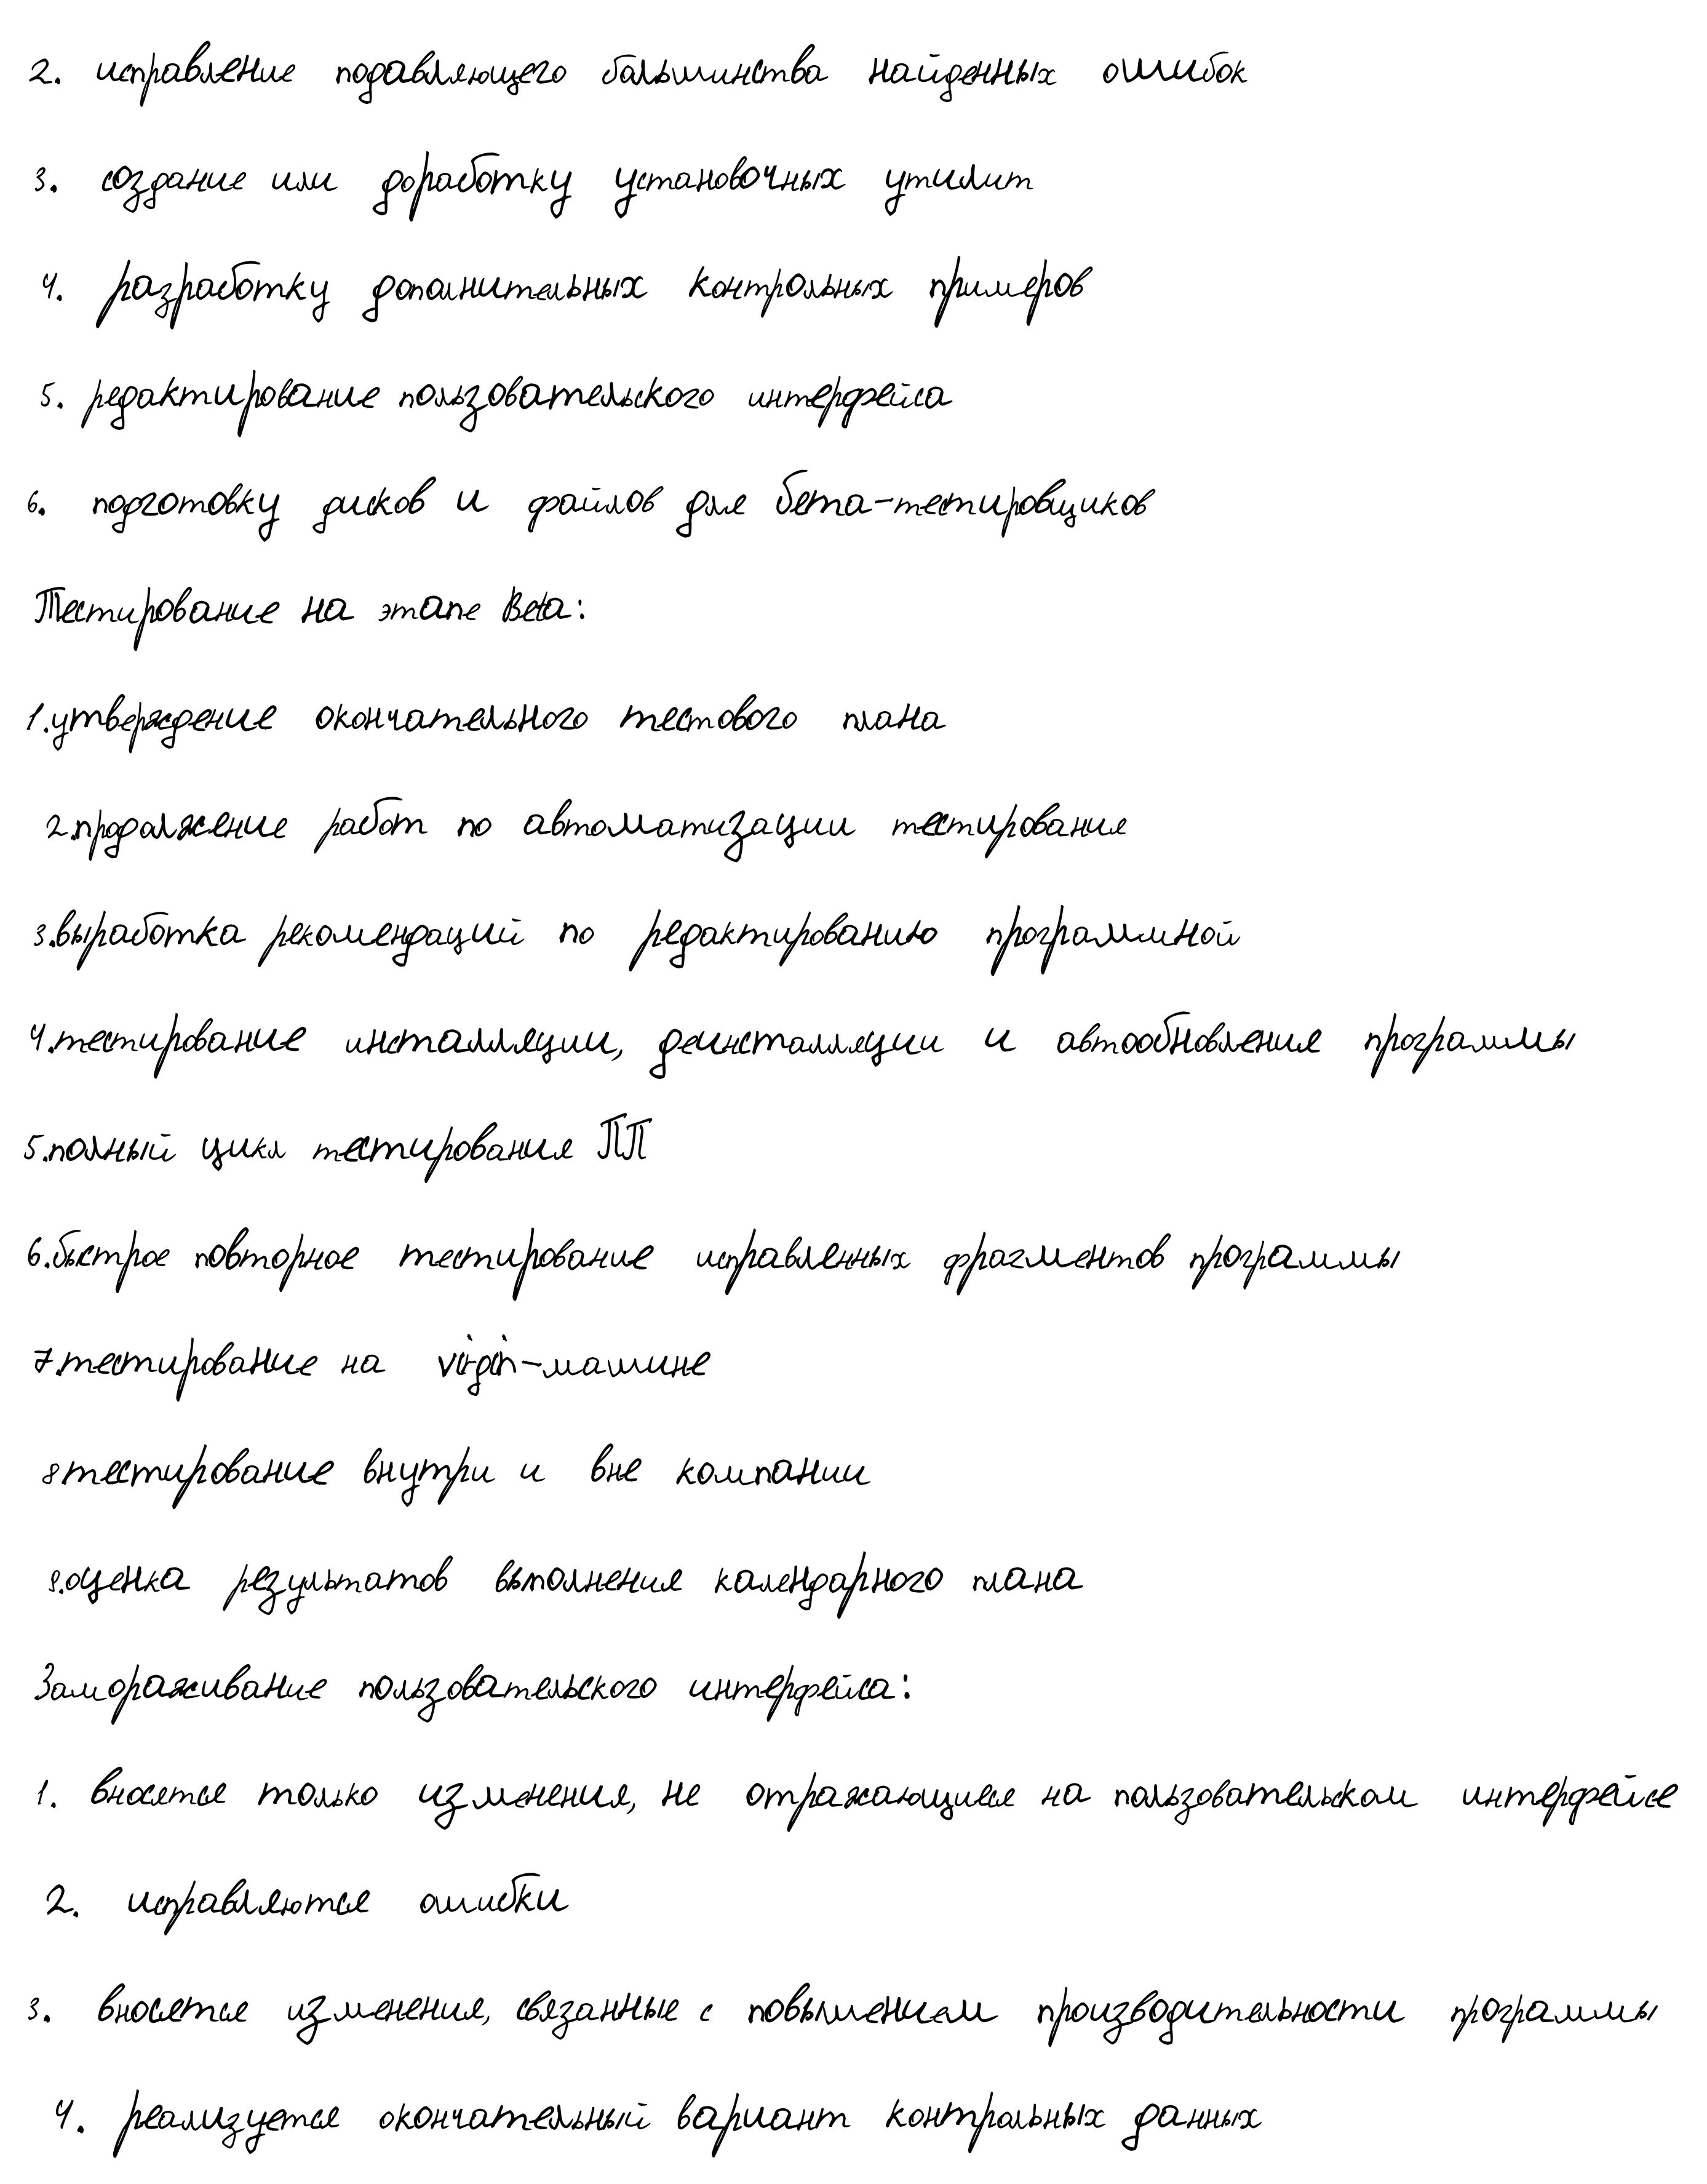 2. исправление подавляющего большинства найденных ошибок
3. создание или доработку установочных утилит
4. разработку дополнительных контрольных примеров
5. редактирование пользовательского интерфейса
6. подготовку дисков и файлов для бета-тестировщиков
Тестирование на этапе Beta:
1.утверждение окончательного тестового плана
2.продолжение работ по автоматизации тестирования
3.выработка рекомендаций по редактированию программной
4.тестирование инсталляции, деинсталляции и автообновления программы
5.полный цикл тестирования ПП
6.быстрое повторное тестирование исправленных фрагментов программы
7.тестирование на virgin-машине
8тестирование внутри и вне компании
9.оценка результатов выполнения календарного плана
Замораживание пользовательского интерфейса:
1. вносятся только изменения, не отражающиеся на пользовательском интерфейсе
2. исправляются ошибки
3. вносятся изменения, связанные с повышением производительности программы
4. реализуется окончательный вариант контрольных данных